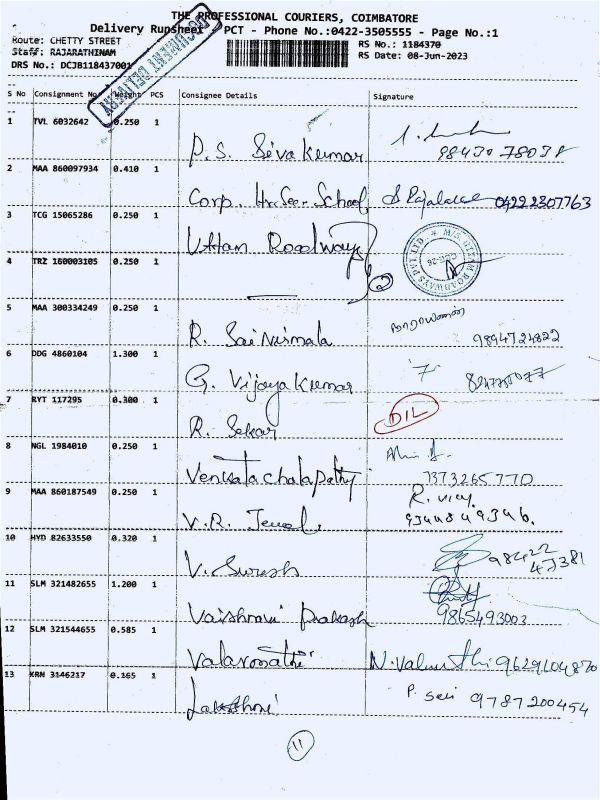 THE PROFESSIONAL COURIERS, COIMBATORE
Delivery Runsheet - PCT - Phone No.:0422-3505555 - Page No.:1
Route: CHETTY STREET
Staff: RAJARATHINAM
DRS No.: DCJB118437001
RS No.: 1184370
RS Date: 08-Jun-2023
DOCUMENT DELIVERY
S No Consignment No Weight PCS Consignee Details Signature
1 TVL 6032642 0.250 1
P.S. Sivakumar 98430 78038
2 MAA 860097934 0.410 1
Corp. Hr. Sec. School 04222307763
3 TCG 15065286 0.250 1
Uttam Roadways
4 TRZ 160003105 0.250 1
2
5 MAA 300334249 0.250 1
R. Sai Nirmala 9894724822
6 DDG 4860104 1.300 1
G. Vijayakumar
7 RYT 117295 0.300 1
R. Sekar D/L
8 NGL 1984010 0.250 1
Venkatachalapathy 7373265770
9 MAA 860187549 0.250 1
V.R. R. vijay
10 HYD 82633550 0.320 1
V. Suresh 98422 47381
11 SLM 321482655 1.200 1
Vaishnavi Prakash 9865493003
12 SLM 321544655 0.585 1
Valarmathi 9629604870
13 KRN 3146217 0.165 1
P. Sai 9787200454
11